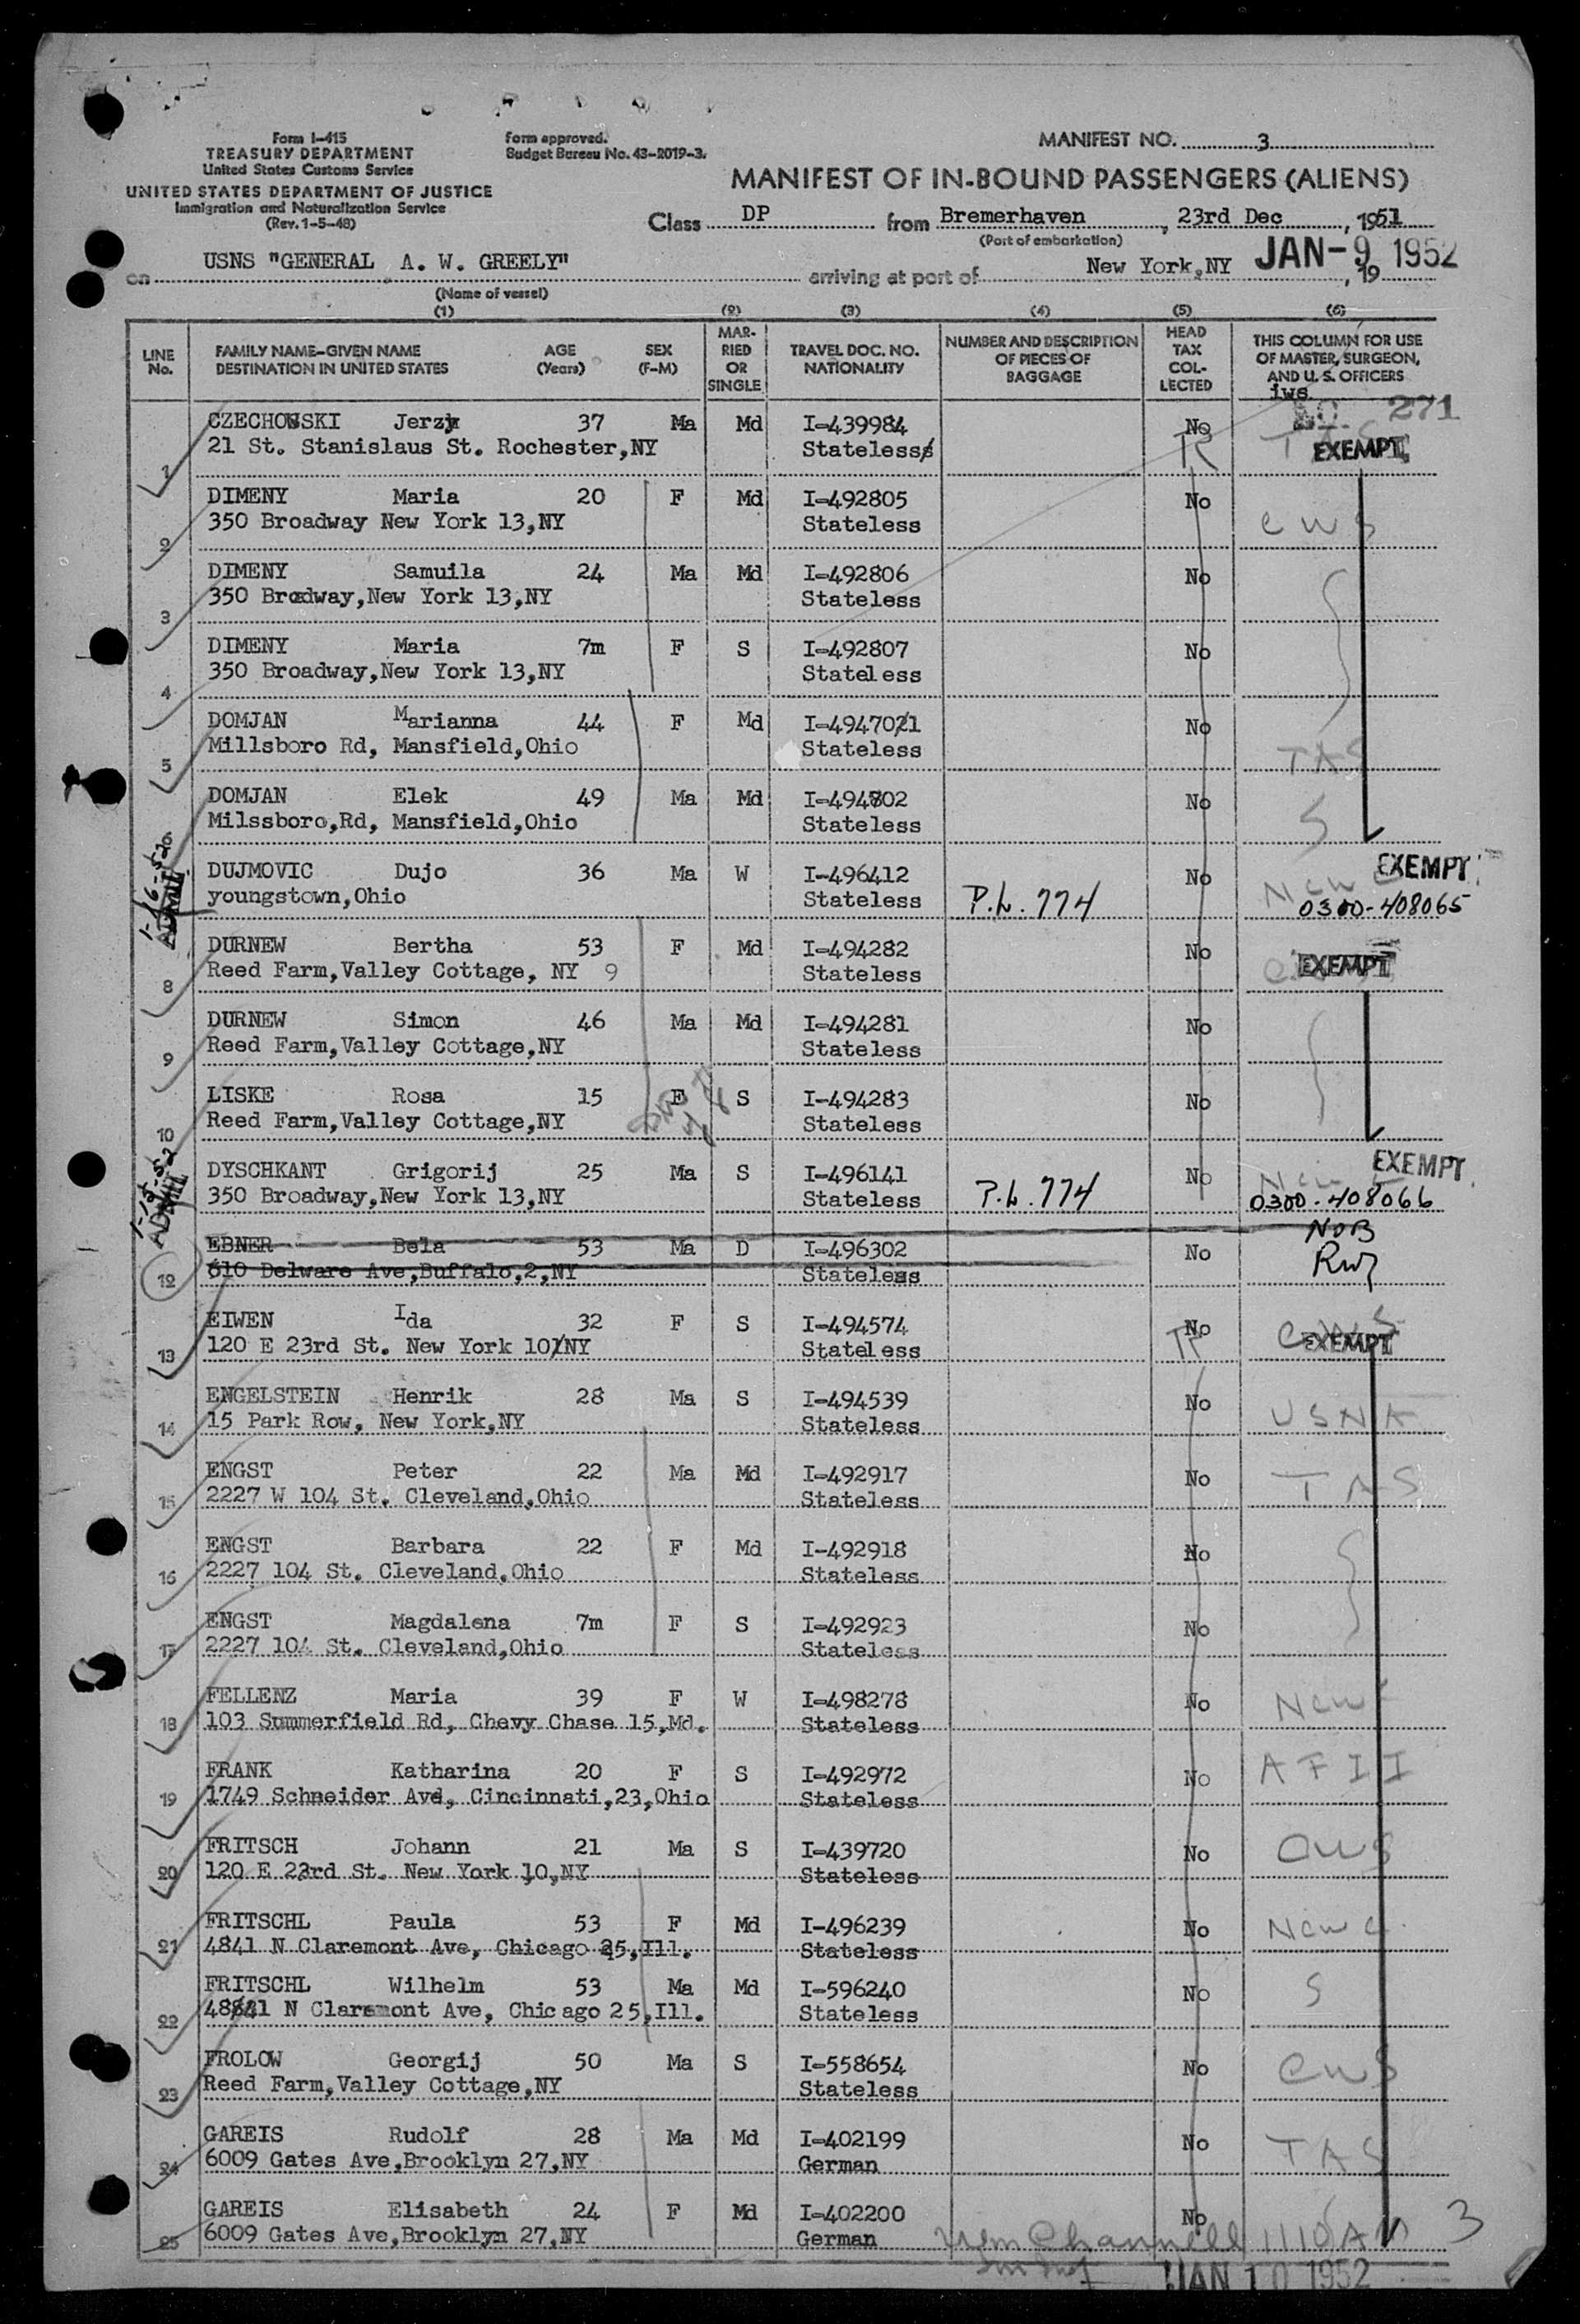 Form I-415
TREASURY DEPARTMENT
United States Customs Service
UNITED STATES DEPARTMENT OF JUSTICE
Immigration and Naturalization Service
(Rev. 1-5-48)
Form approved.
Budget Bureau No. 43-2019-3.
MANIFEST NO. 3
MANIFEST OF IN-BOUND PASSENGERS (ALIENS)
Class DP from Bremerhaven, 23rd Dec, 1951
(Port of embarkation)
on USNS "GENERAL A. W. GREELY" arriving at port of New York,NY JAN-9 1952, 19
(Name of vessel)
(1) (2) (3) (4) (5) (6)
LINE No. FAMILY NAME-GIVEN NAME DESTINATION IN UNITED STATES AGE (Years) SEX (F-M) MARRIED OR SINGLE TRAVEL DOC. NO. NATIONALITY NUMBER AND DESCRIPTION OF PIECES OF BAGGAGE HEAD TAX COLLECTED THIS COLUMN FOR USE OF MASTER, SURGEON, AND U. S. OFFICERS
iws
271
CZECHOWSKI Jerzy 37 Ma Md I-439984 No
1 21 St. Stanislaus St. Rochester,NY Stateless EXEMPT
DIMENY Maria 20 F Md I-492805 No
2 350 Broadway New York 13,NY Stateless cws
DIMENY Samuila 24 Ma Md I-492806 No
3 350 Broadway,New York 13,NY Stateless
DIMENY Maria 7m F S I-492807 No
4 350 Broadway,New York 13,NY Stateless
DOMJAN Marianna 44 F Md I-494701 No
5 Millsboro Rd, Mansfield,Ohio Stateless TAS
DOMJAN Elek 49 Ma Md I-494702 No
6 Milssboro,Rd, Mansfield,Ohio Stateless S
DUJMOVIC Dujo 36 Ma W I-496412 No EXEMPT
youngstown,Ohio Stateless P.L. 774 0300-408065
1-16-52 ADMIT
DURNEW Bertha 53 F Md I-494282 No EXEMPT
8 Reed Farm,Valley Cottage, NY 9 Stateless
DURNEW Simon 46 Ma Md I-494281 No
9 Reed Farm,Valley Cottage,NY Stateless
LISKE Rosa 15 F S I-494283 No
10 Reed Farm,Valley Cottage,NY Stateless
DYSCHKANT Grigorij 25 Ma S I-496141 No EXEMPT
350 Broadway,New York 13,NY Stateless P.L. 774 0300-408066
EBNER Bela 53 Ma D I-496302 No NOB
12 610 Delware Ave,Buffalo,2,NY Stateless
EIWEN Ida 32 F S I-494574 No
13 120 E 23rd St. New York 10,NY Stateless EXEMPT
ENGELSTEIN Henrik 28 Ma S I-494539 No
14 15 Park Row, New York,NY Stateless USNA
ENGST Peter 22 Ma Md I-492917 No
15 2227 W 104 St. Cleveland,Ohio Stateless TAS
ENGST Barbara 22 F Md I-492918 No
16 2227 104 St. Cleveland,Ohio Stateless
ENGST Magdalena 7m F S I-492923 No
17 2227 104 St. Cleveland,Ohio Stateless
FELLENZ Maria 39 F W I-498278 No
18 103 Summerfield Rd, Chevy Chase 15,Md. Stateless
FRANK Katharina 20 F S I-492972 No AFII
19 1749 Schneider Ave, Cincinnati,23,Ohio Stateless
FRITSCH Johann 21 Ma S I-439720 No cws
20 120 E 23rd St. New York 10,NY Stateless
FRITSCHL Paula 53 F Md I-496239 No
21 4841 N Claremont Ave, Chicago 25,Ill. Stateless
FRITSCHL Wilhelm 53 Ma Md I-596240 No S
22 4841 N Claremont Ave, Chicago 25,Ill. Stateless
FROLOW Georgij 50 Ma S I-558654 No cws
23 Reed Farm,Valley Cottage,NY Stateless
GAREIS Rudolf 28 Ma Md I-402199 No
24 6009 Gates Ave,Brooklyn 27,NY German TAS
GAREIS Elisabeth 24 F Md I-402200 No
25 6009 Gates Ave,Brooklyn 27,NY German
Wm Channell 1110 AM 3
JAN 10 1952